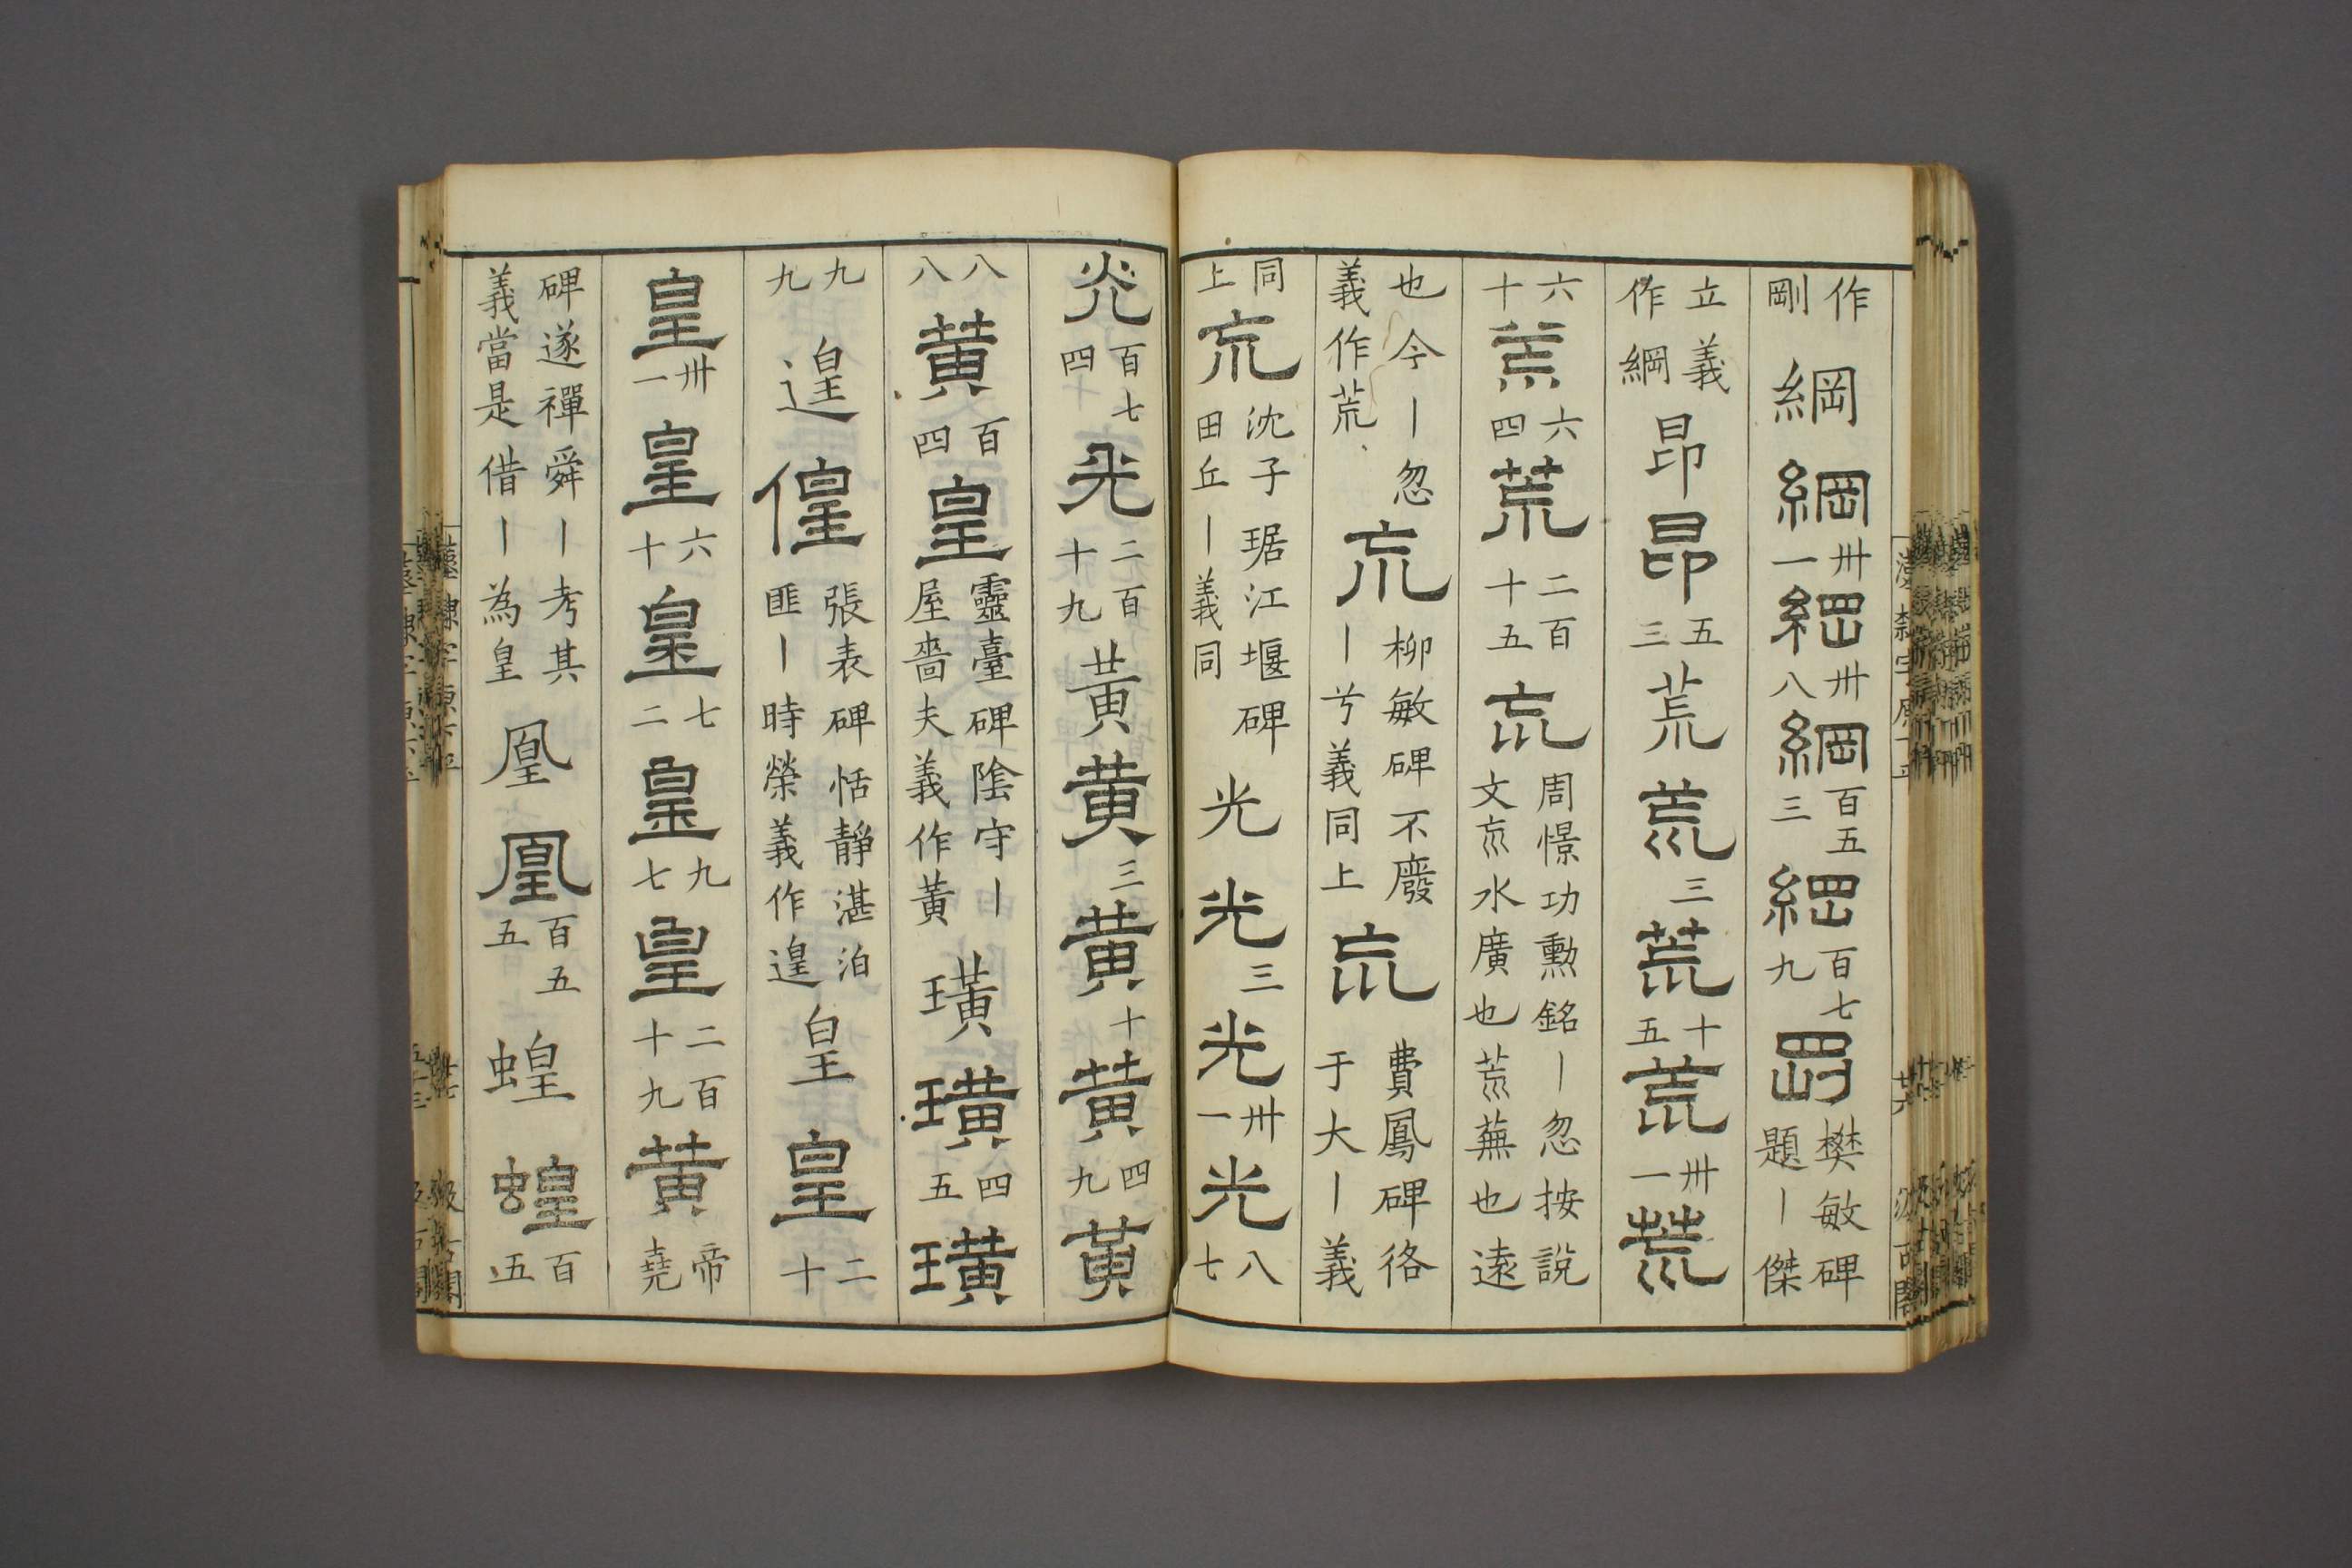 作剛 綱 綱 卅一 綱 卅八 綱 百五三 綱 百七九 罡 樊敏碑題丨傑
立義作綱 昂 昂 五三 荒 荒 三 荒 十五 荒 卅一 荒
六十 荒 六四 荒 二百十五 巟 周憬功勳銘丨忽按說文巟水廣也荒蕪也遠
也今丨忽義作荒 巟 柳敏碑不廢丨兮義同上 巟 費鳳碑佫于大丨義
同上 巟 沈子琚江堰碑田丘丨義同 光 光 三 光 卅一 光 八七
炗 百七四 光 二百十九 黃 黃 三 黃 十 黃 四九 黃
八八 黃 百四 皇 靈臺碑陰守丨屋嗇夫義作黃 璜 璜 四五 璜
九九 遑 偟 張表碑恬靜湛泊匪丨時榮義作遑 皇 皇 二十
皇 卅一 皇 六十 皇 七二 皇 九七 皇 二百十九 黃 帝堯
碑遂禪舜丨考其義當是借丨為皇 凰 凰 百五五 蝗 蝗 百五